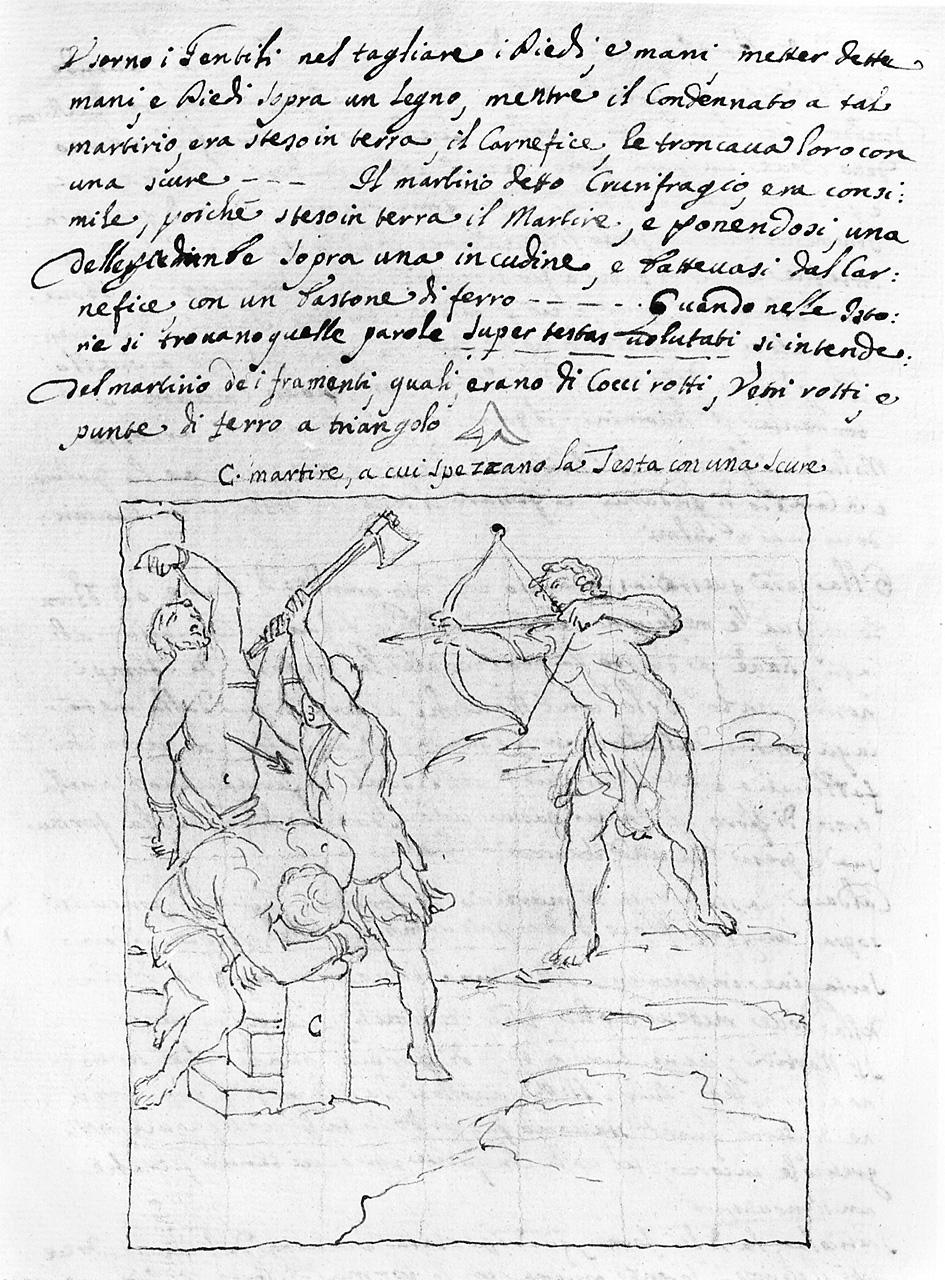 Usorno i Gentili nel tagliare i Piedi, e mani, metter dette
mani, e Piedi sopra un legno, mentre il Condennato a tal
martirio, era steso in terra, il Carnefice, le troncava loro con
una scure - - - Il martirio detto Crurifragio, era consi:
mile, poiche steso in terra il Martire, e ponendosi, una
delle gambe sopra una incudine, e battevasi dal Car:
nefice, con un bastone di ferro - - - - - . Quando nelle Isto:
rie si trovano quelle parole super testas volutati si intende:
del martirio de i framenti, quali, erano di Cocci rotti, Vetri rotti, e
punte di ferro a triangolo
C. martire, a cui spezzano la Testa con una scure
3
C
C